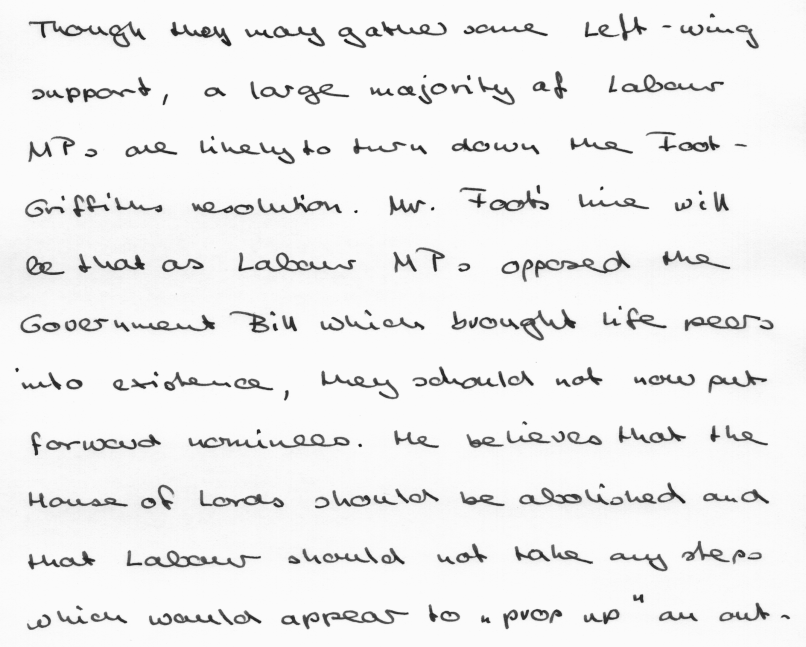 Though they may gather some Left-wing
support, a large majority of Labour
MPs are likely to turn down the Foot-
Griffiths resolution. Mr. Foot's line will
be that as Labour MPs opposed the
Government Bill which brought life peers
into existence, they should not now put
forward nominees. He believes that the
House of Lords should be abolished and
that Labour should not take any steps
which would appear to "prop up" an out-